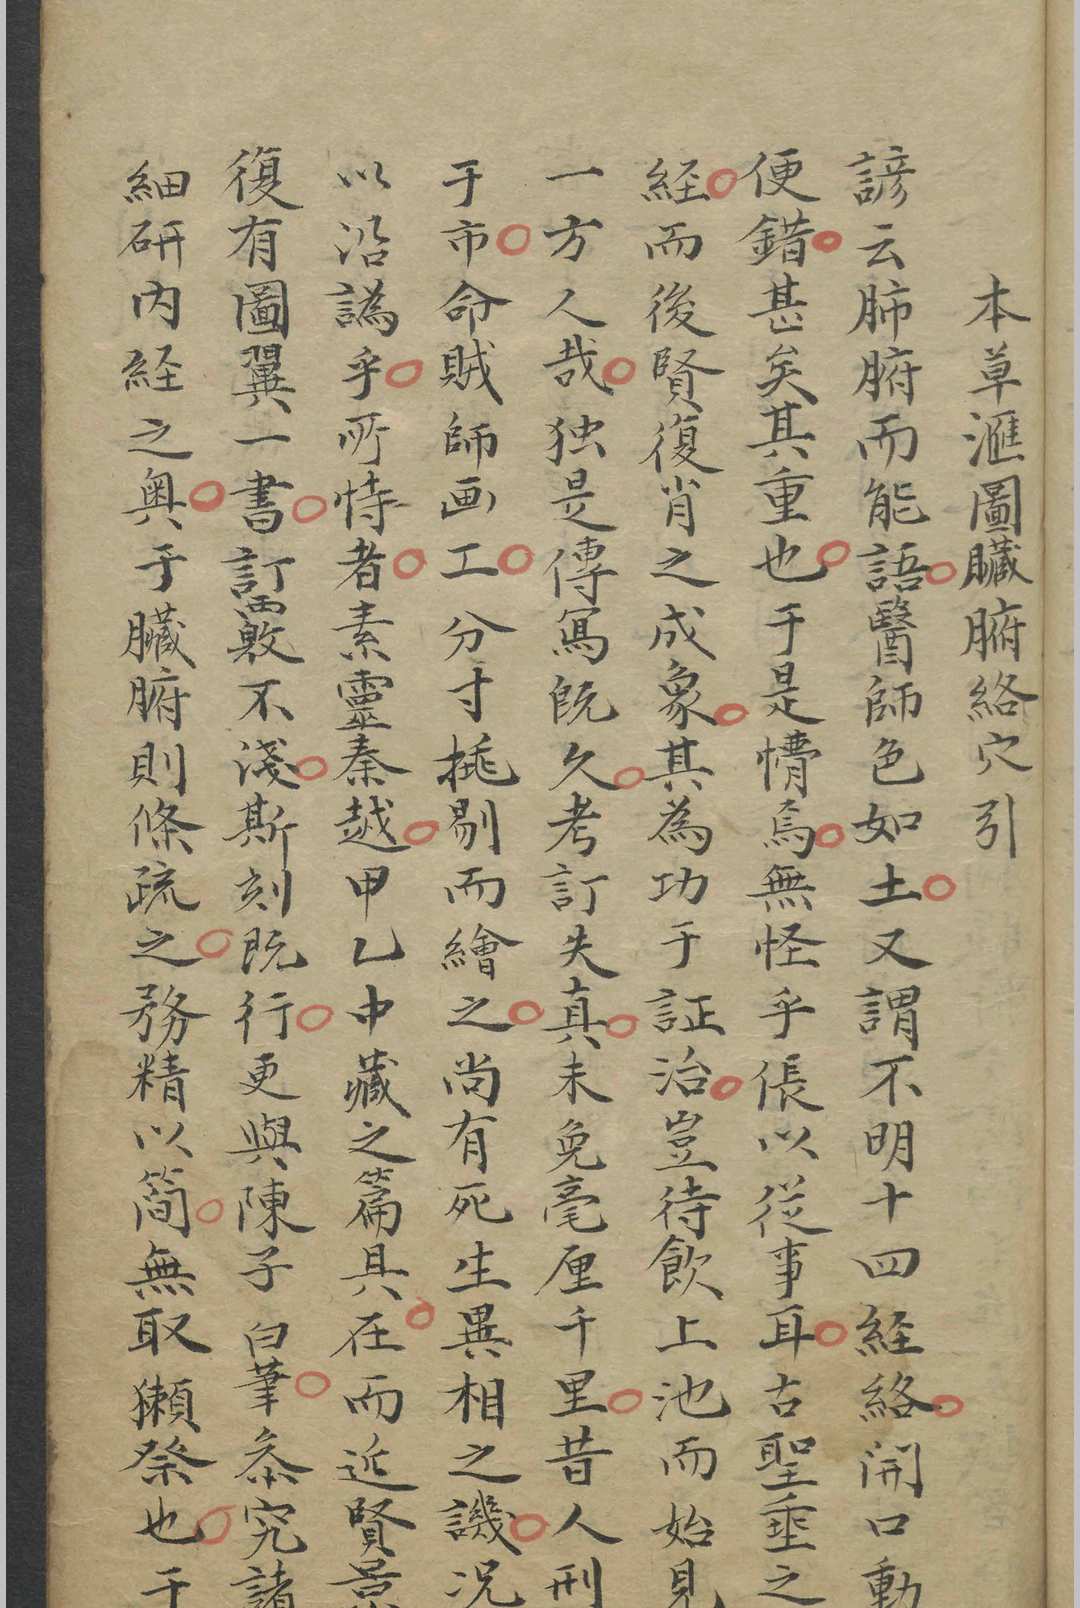 本草滙圖臟腑絡穴引
諺云肺腑而能語醫師色如土又謂不明十四経絡開口動
便錯甚矣其重也于是懵焉無怪乎倀以従事耳古聖垂之
経而後賢復肖之成象其為功于証治豈待飲上池而始見
一方人哉独是傳寫旣久考訂失真未免毫厘千里昔人刑
于市命賊師画工分寸挑剔而繪之尚有死生異相之譏况
以沿譌乎所恃者素靈秦越甲乙中藏之篇具在而近賢景
復有圖翼一書訂覈不淺斯刻既行更與陳子白筆叅究諸
細研内経之奥于臟腑則條疏之務精以簡無取獺祭也于